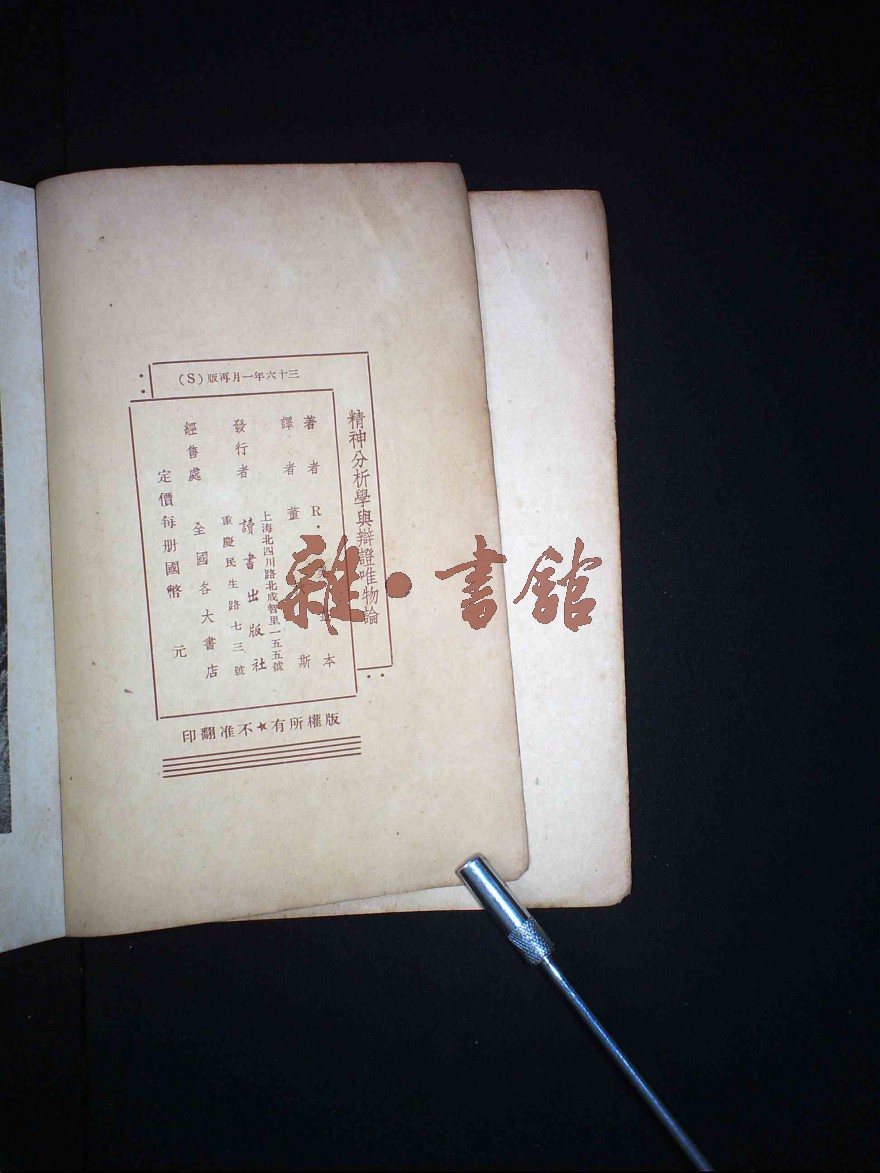 三十六年一月再版(S)
精神分析學與辯證唯物論
著者 R· 本
譯者 董 斯
上海北四川路北成智里一五五號
發行者 讀書出版社
重慶民生路七三號
經售處 全國各大書店
定價每册國幣 元
版權所有★不准翻印
雜·書館